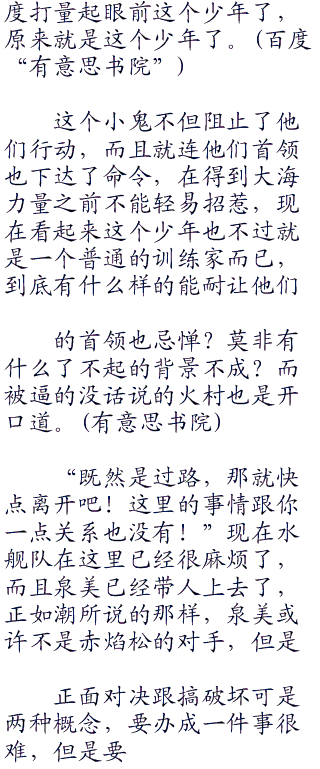 度打量起眼前这个少年了，
原来就是这个少年了。(百度
“有意思书院”)
这个小鬼不但阻止了他
们行动，而且就连他们首领
也下达了命令，在得到大海
力量之前不能轻易招惹，现
在看起来这个少年也不过就
是一个普通的训练家而已，
到底有什么样的能耐让他们
的首领也忌惮？莫非有
什么了不起的背景不成？而
被逼的没话说的火村也是开
口道。(有意思书院)
“既然是过路，那就快
点离开吧！这里的事情跟你
一点关系也没有！”现在水
舰队在这里已经很麻烦了，
而且泉美已经带人上去了，
正如潮所说的那样，泉美或
许不是赤焰松的对手，但是
正面对决跟搞破坏可是
两种概念，要办成一件事很
难，但是要